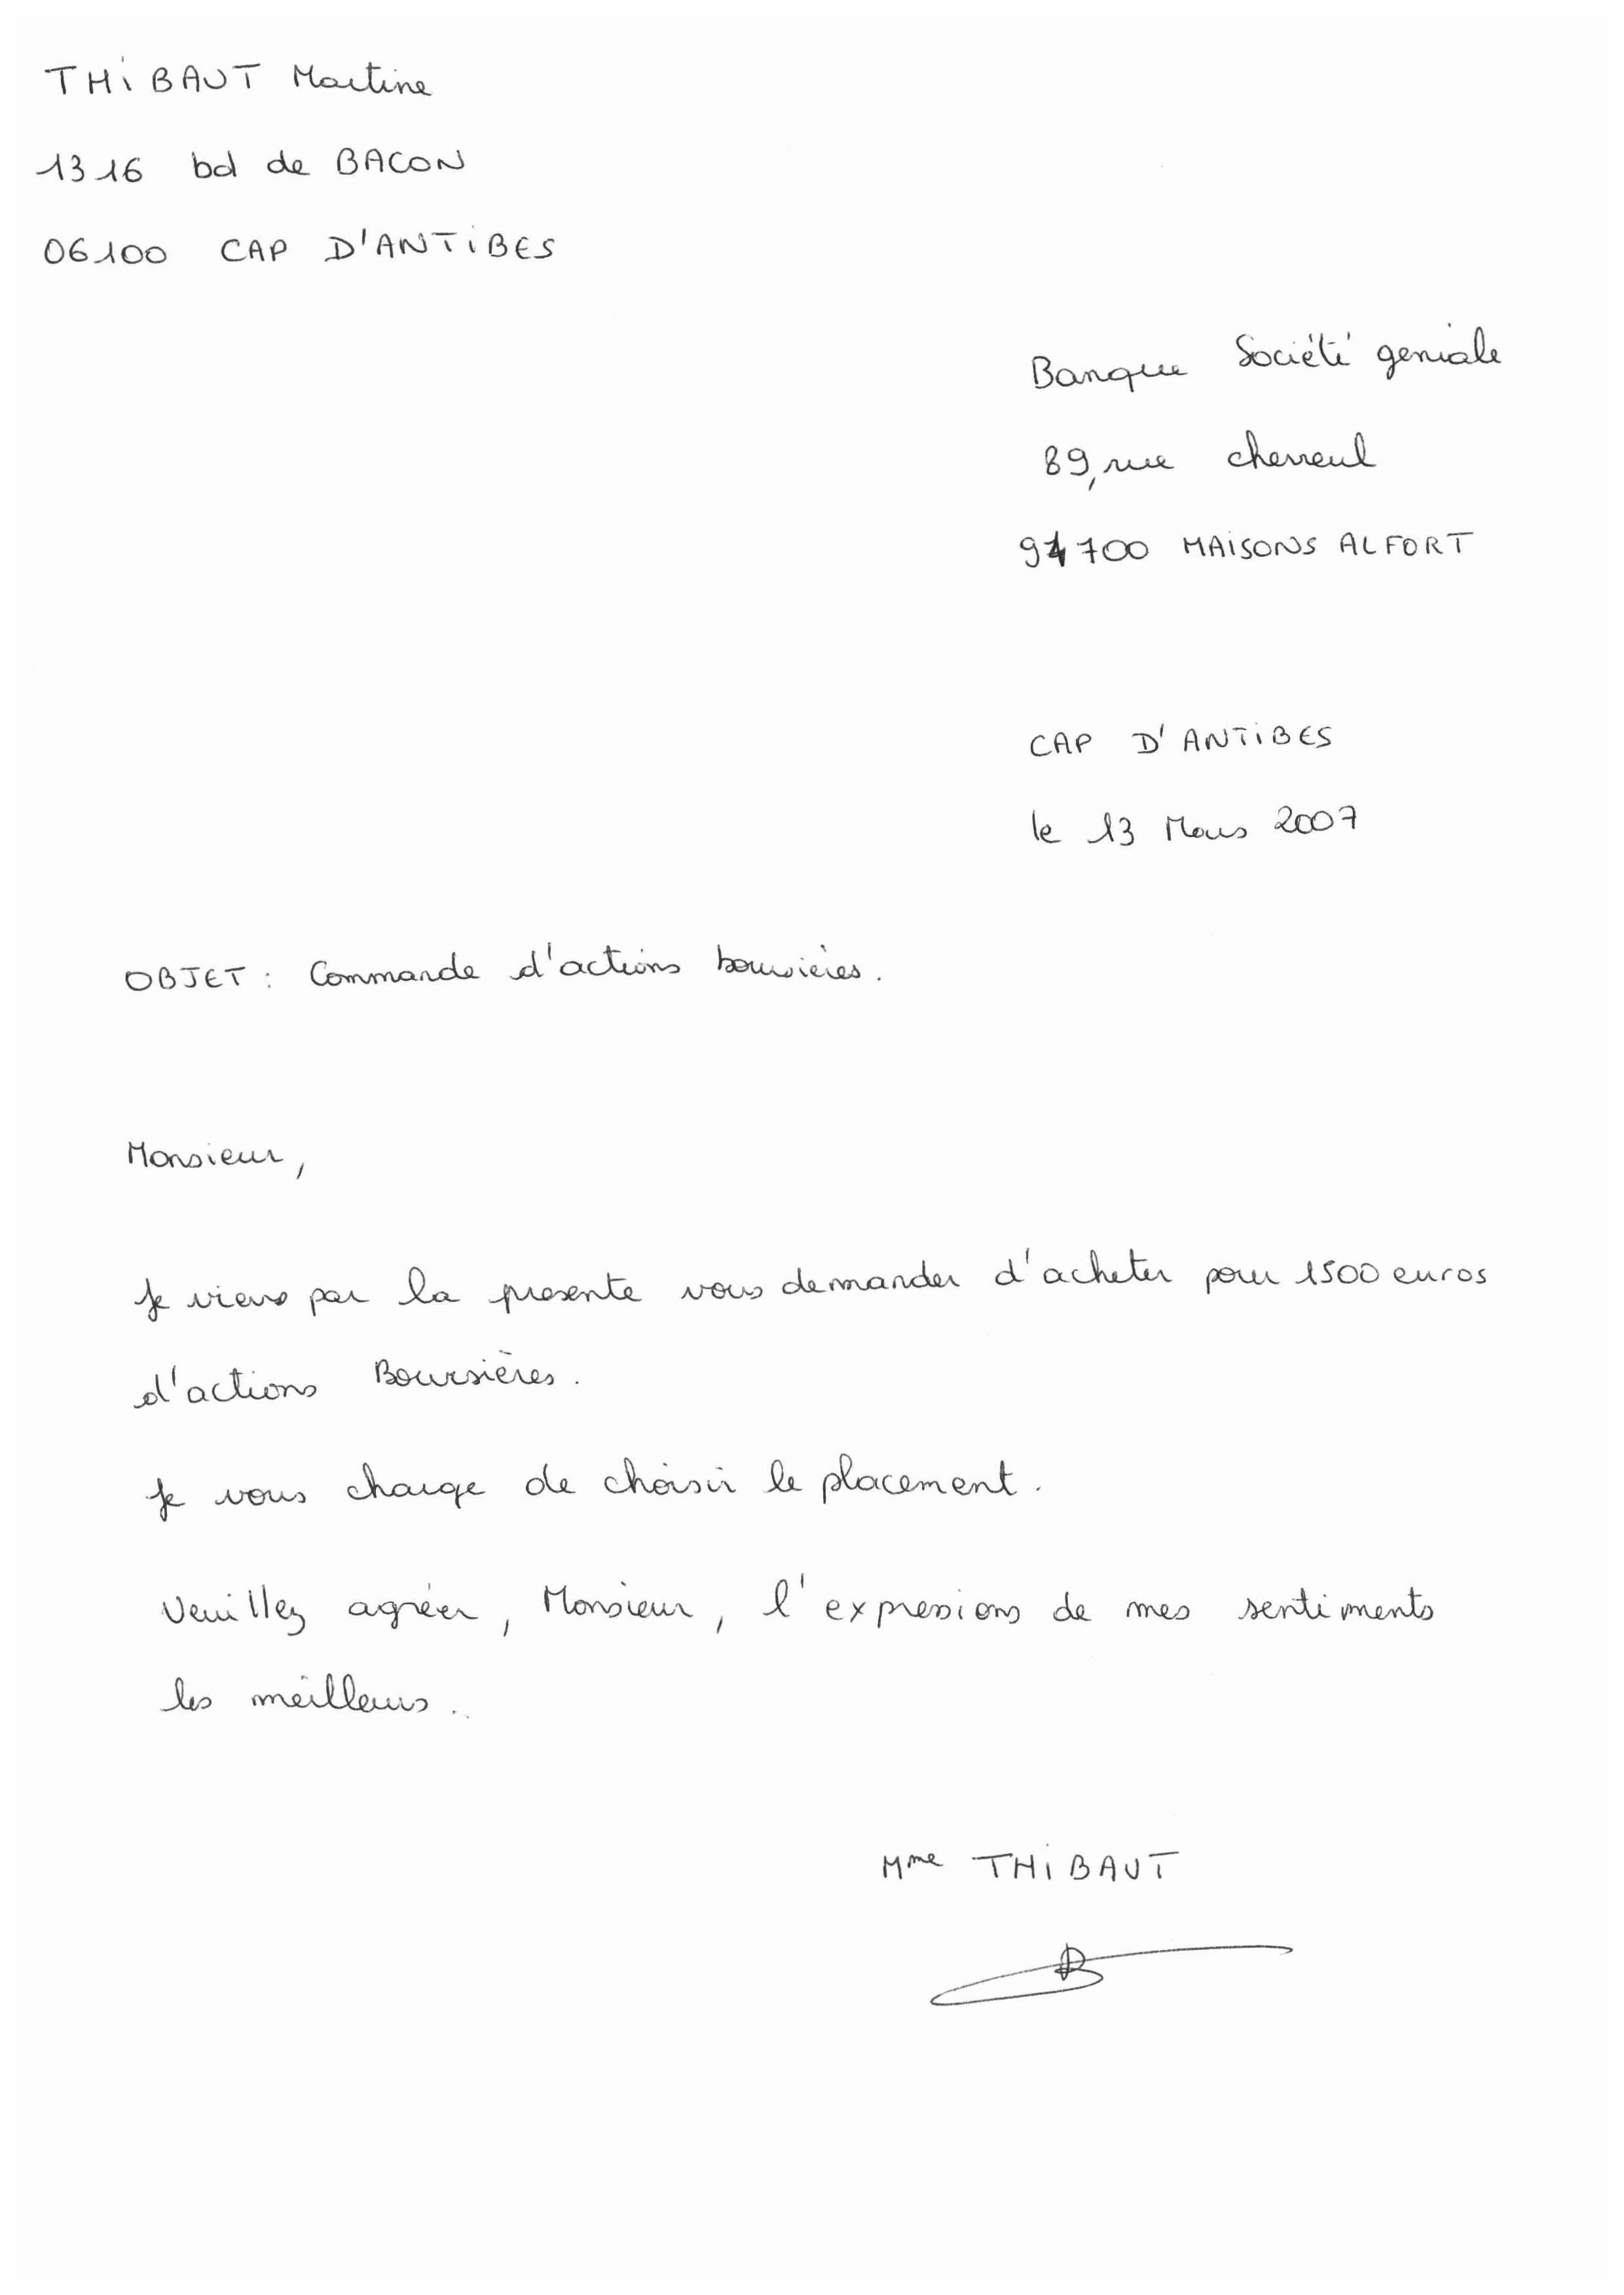 THiBAUT Martine
1316 bd de BACON
06100 CAP D'ANTiBES
Banque Société geniale
89, rue chevreul
94700 MAiSONS ALFORT
CAP D'ANTiBES
le 13 Mars 2007
OBJET : Commande d'actions boursières.
Monsieur,
Je viens par la presente vous demander d'acheter pour 1500 euros
d'actions Boursières.
Je vous charge de choisir le placement.
Veuillez agréer, Monsieur, l'expressions de mes sentiments
les meilleurs.
Mme THiBAUT